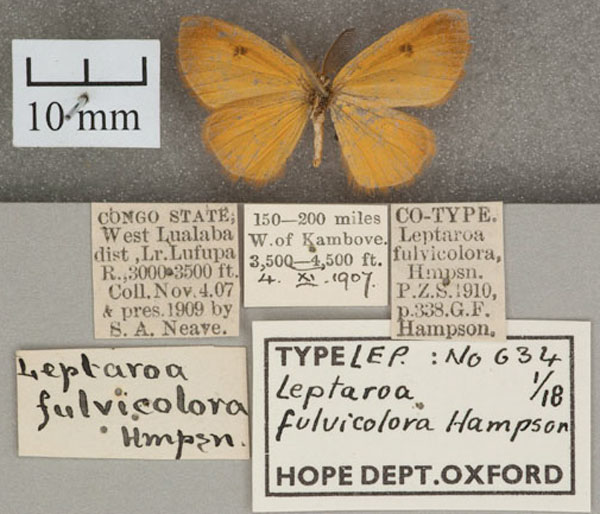 10 mm
CONGO STATE;
West Lualaba
dist, Lr. Lufupa
R., 3000-3500 ft.
Coll. Nov. 4.07
& pres. 1909 by
S. A. Neave.
150—200 miles
W. of Kambove.
3,500—4,500 ft.
4. XI. 1907.
CO-TYPE.
Leptaroa
fulvicolora,
Hmpsn.
P.Z.S. 1910,
p.338. G.F.
Hampson.
Leptaroa
fulvicolora
Hmpsn.
TYPE LEP. : No 634
Leptaroa 1/18
fulvicolora Hampson
HOPE DEPT. OXFORD